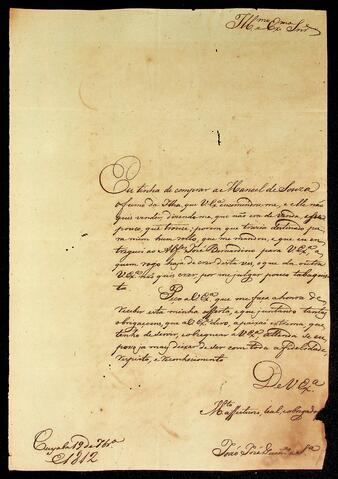 Ill.mo e Ex.mo Snr
Eu tinha de comprar a Manoel de Souza
o fumo da Ilha, que V. Ex.a me, e elle não
quis vender, dizendo me, que não era de venda, esse
pouco, que trouce: porem que trazia destinado pa
ra mim hum rolo, que me mandou, e que eu en
treguei ao Alf.es José Bernardino para V. Ex.a, a
quem rogo haja de crer desta vez, o que da outra
V. Ex.a não quis crer, por me julgar pouco tabaquis
ta.
Peço a V. Ex.a que me faça a honra de
receber esta minha offerta, e que juntando tantas
obrigaçoens, que a V. Ex.a devo, a paixão extrema, que
tenho de servir, a V. Ex.a
pois ja mais deixar de ser com toda a fidelidade,
respeito, e reconhecimento
De V. Ex.a
M.to
leal, e obrigado
João José
Cuyabá 19 de
1812